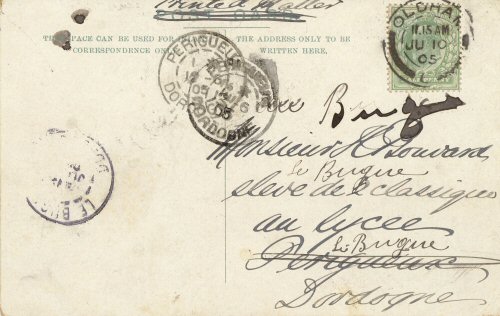 Printed Matter
POST CARD
THIS SPACE CAN BE USED FOR
CORRESPONDENCE ONLY
THE ADDRESS ONLY TO BE
WRITTEN HERE.
OLDHAM
11.15AM
JU 10
05
PERIGUEUX
DORDOGNE
05
LE BUGUE
Bugue
Monsieur Bouvard
Le Bugue
élève de classique
au lycée
Le Bugue
Périgueux
Dordogne